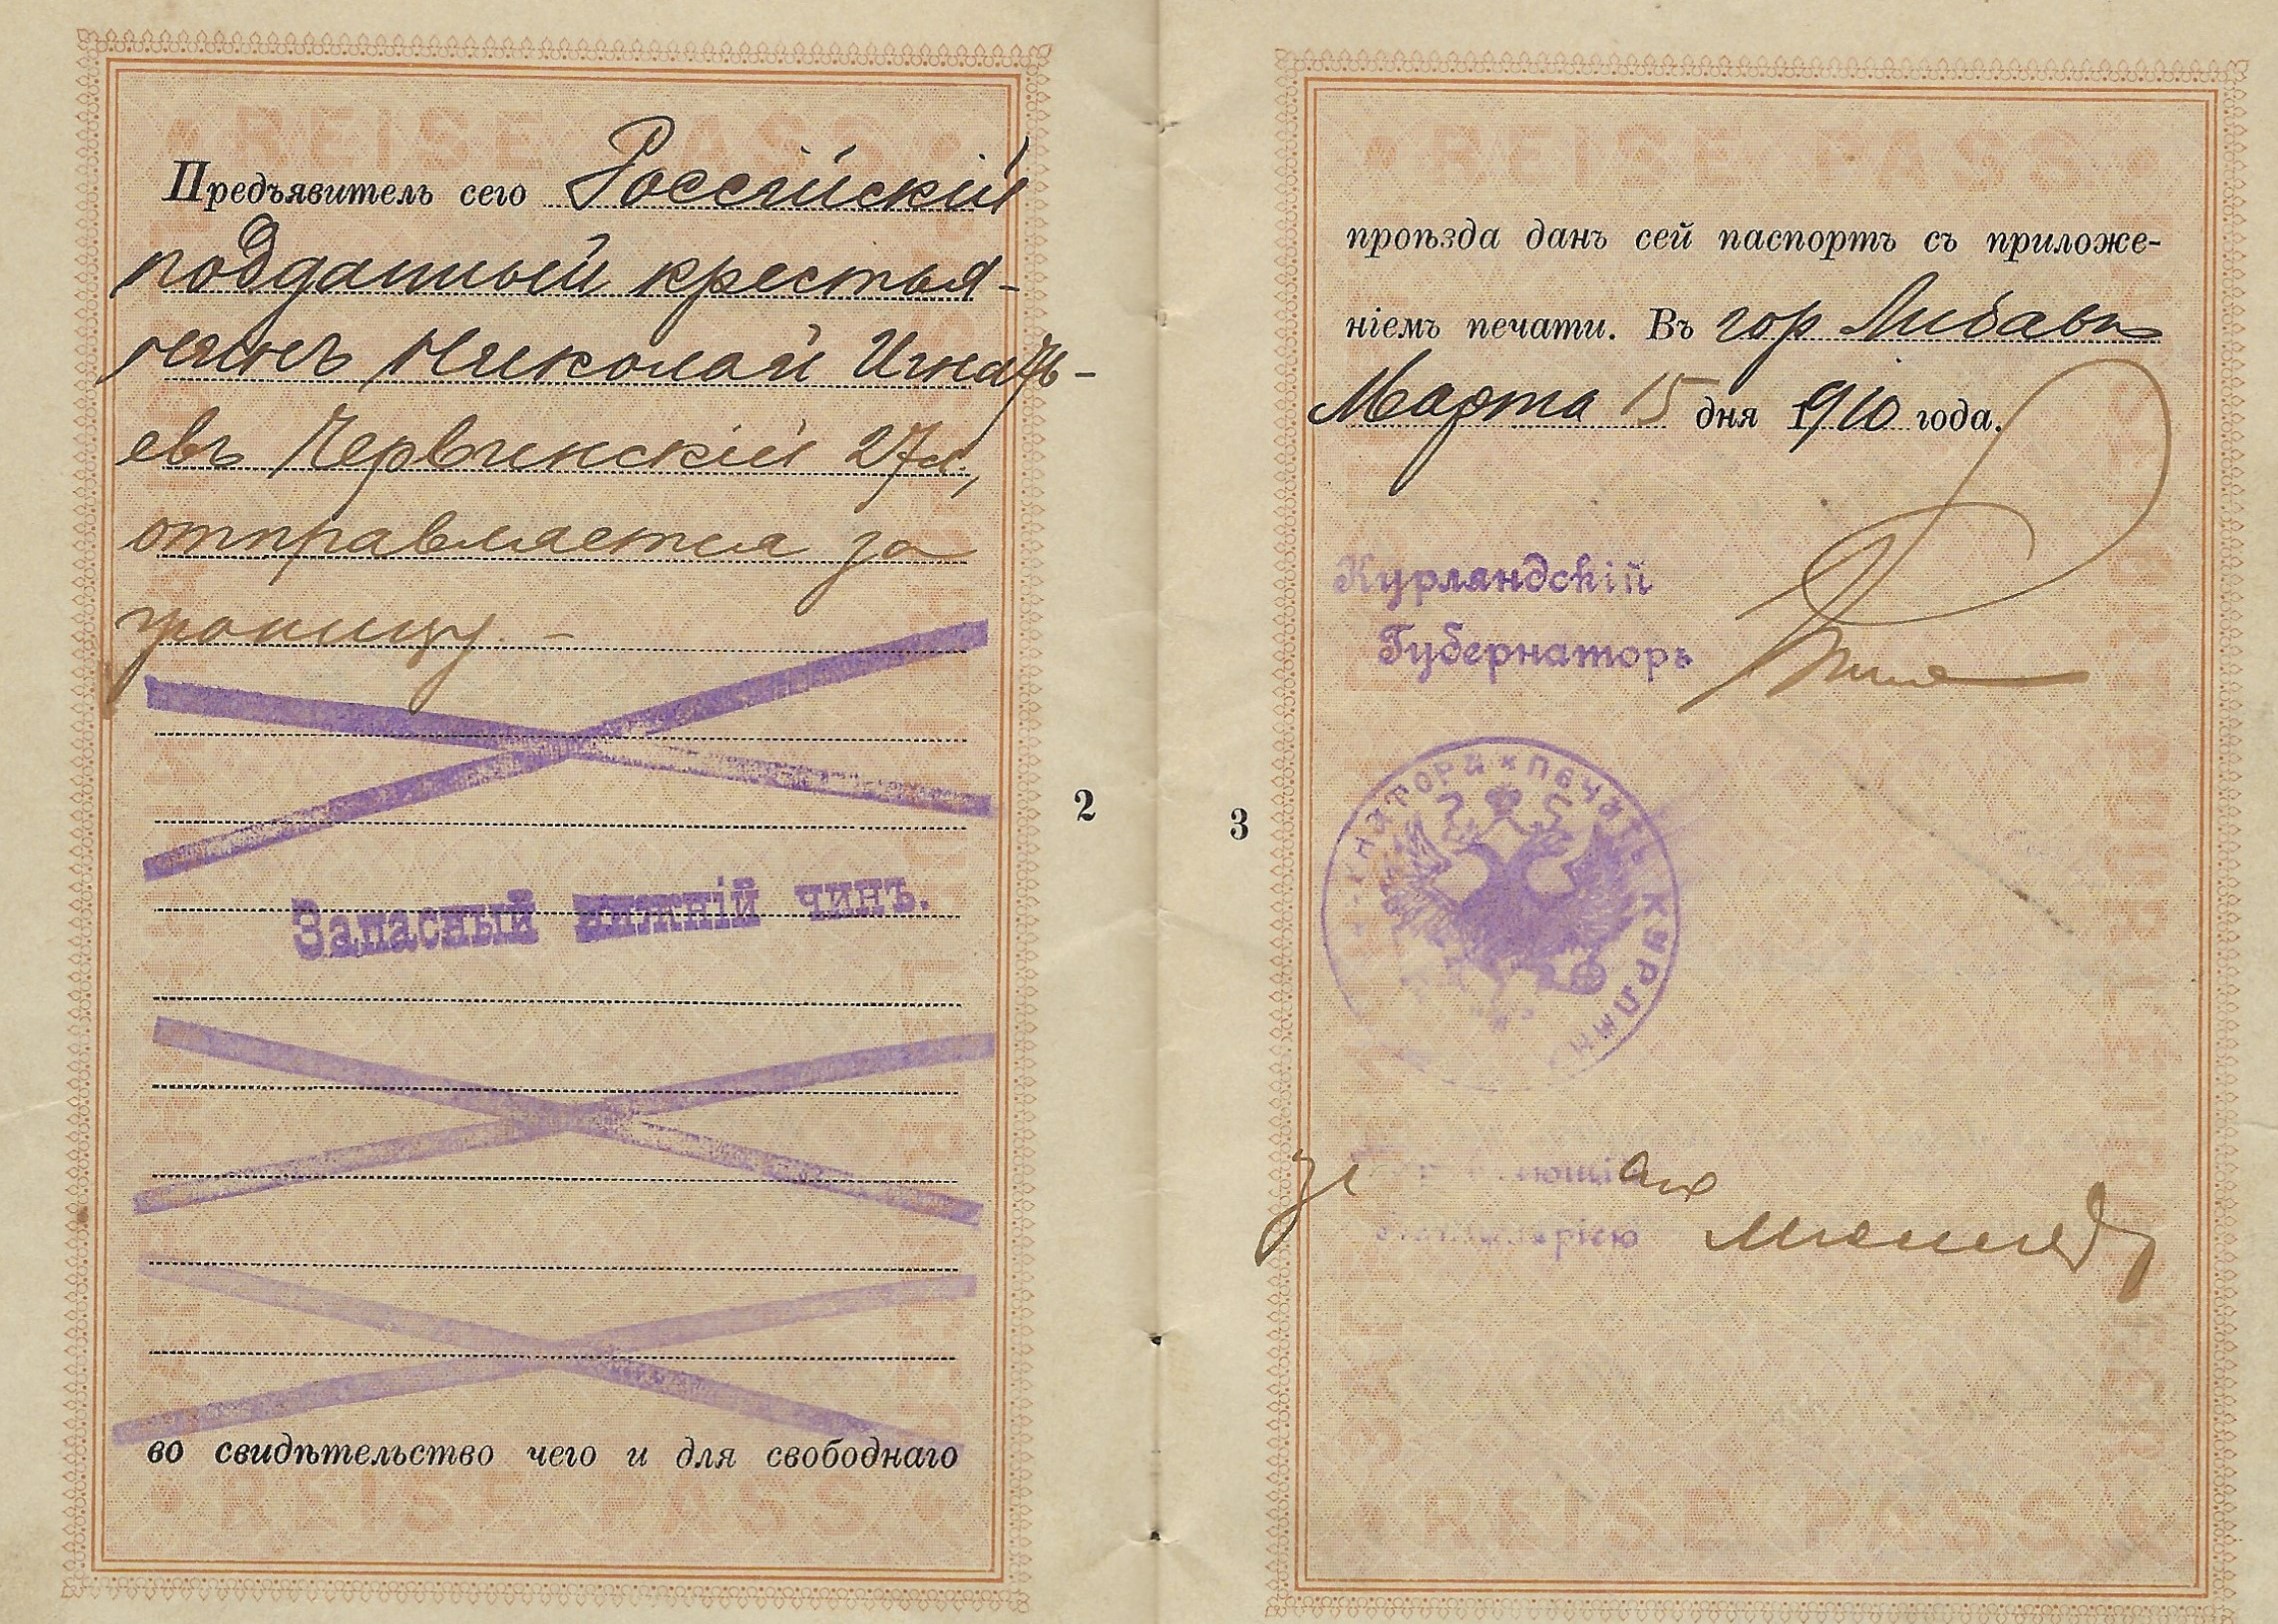 REISE PASS
Предъявитель сего Россійскій
подданный крестья-
нинъ Николай Игнать-
евъ Червинскій 27 л.,
отправляется за
границу. –
Запасный нижній чинъ.
во свидѣтельство чего и для свободнаго
REISE PASS
2
REISE PASS
проѣзда данъ сей паспортъ съ приложе-
ніемъ печати. Въ гор Либавѣ
Марта 15 дня 1910 года.
Курландскій
Губернаторъ
ПЕЧАТЬ КУРЛЯН
REISE PASS
3